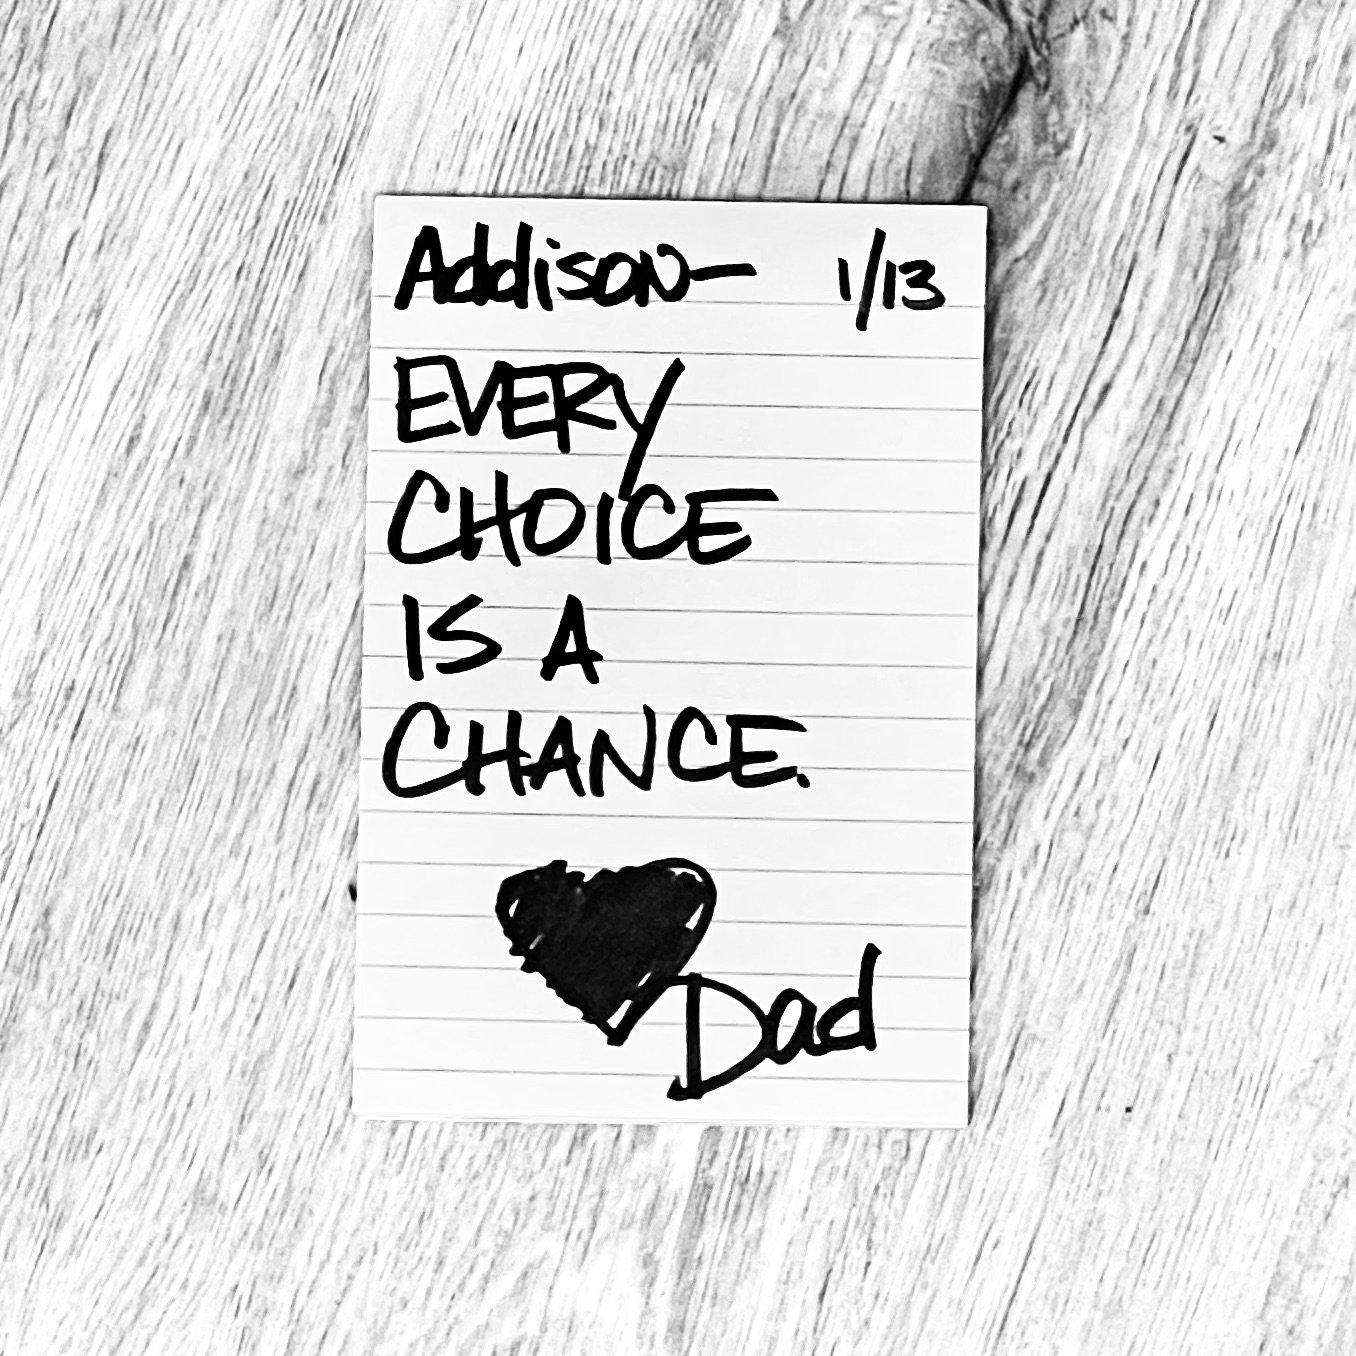 Addison— 1/13
EVERY
CHOICE
IS A
CHANCE.
Dad